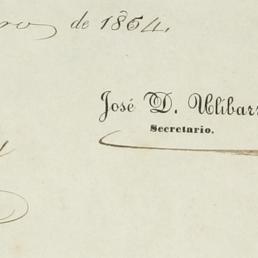 ro de 1864.
José D. Ulibarr
Secretario.